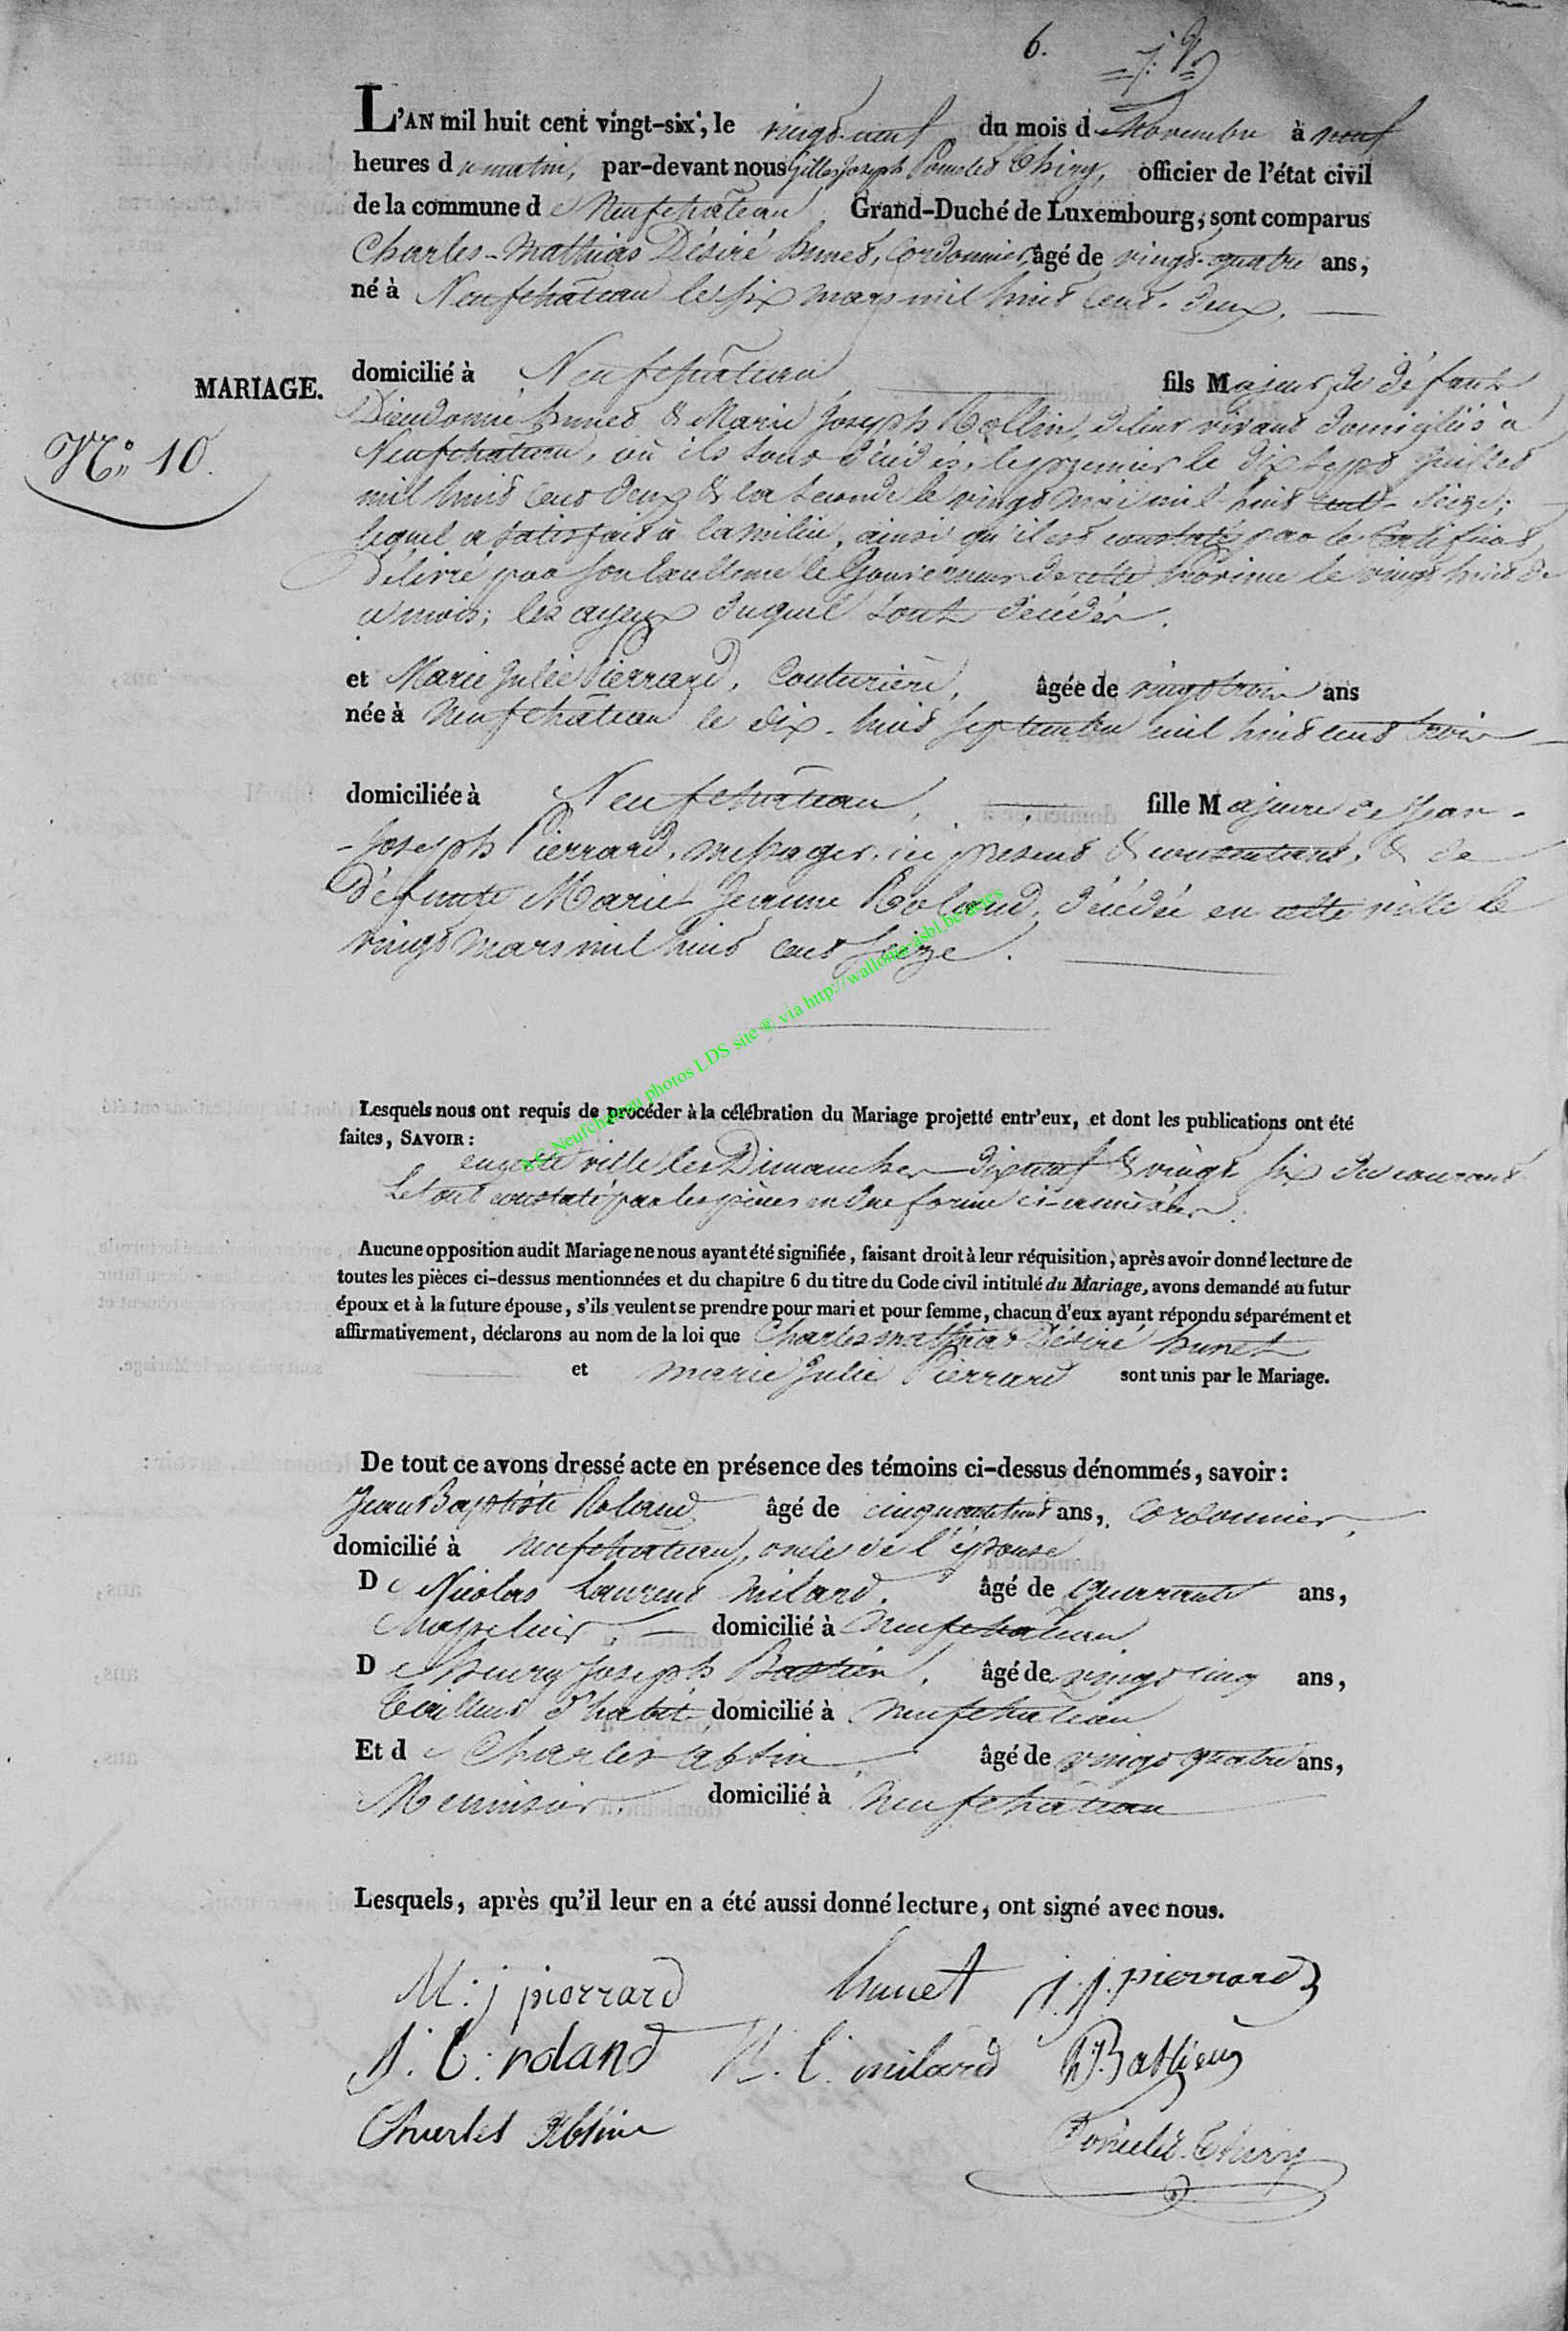 6.
L'AN mil huit cent vingt-six, le vingt-neuf du mois d Novembre à neuf
heures du matin, par-devant nous Gilles Joseph Thiry, officier de l'état civil
de la commune de Neufchâteau, Grand-Duché de Luxembourg, sont comparus
Charles-Mathias Désiré hunet, Cordonnier, âgé de vingt-quatre ans,
né à Neufchâteau le six mars mil huit cent deux.
domicilié à Neufchâteau fils Majeur de défunts
MARIAGE.
Dieudonné hunet & Marie Joseph Collin, de leur vivant domiciliés à
N° 10.
Neufchâteau, où ils sont décédés, le premier le dix sept juillet
mil huit cent deux & la seconde le vingt mai mil huit cent seize;
lequel a satisfait à la milice, ainsi qu'il est constaté par le Certificat
délivré par son Excellence le Gouverneur de cette Province le vingt huit de
ce mois; les ayeux duquel sont décédés.
et Marie Julie Pierrard, Couturière, âgée de vingt trois ans
née à Neufchâteau le dix-huit septembre mil huit cent trois
domiciliée à Neufchâteau, fille Majeure de Jean-
-Joseph Pierrard, messager, ici présent & consentant, & de
défunte Marie Jeanne Roland, décédée en cette ville le
vingt mars mil huit cent seize.
Neufchateau photos LDS site ® via http://wallonia-asbl.be/actes
Lesquels nous ont requis de procéder à la célébration du Mariage projetté entr'eux, et dont les publications ont été
faites, SAVOIR:
en cette ville les Dimanches dix neuf & vingt six du courant
Le tout constaté par les pièces en due forme ci-annexées.
Aucune opposition audit Mariage ne nous ayant été signifiée, faisant droit à leur réquisition, après avoir donné lecture de
toutes les pièces ci-dessus mentionnées et du chapitre 6 du titre du Code civil intitulé du Mariage, avons demandé au futur
époux et à la future épouse, s'ils veulent se prendre pour mari et pour femme, chacun d'eux ayant répondu séparément et
affirmativement, déclarons au nom de la loi que Charles mathias Désiré hunet
et marie Julie Pierrard sont unis par le Mariage.
De tout ce avons dressé acte en présence des témoins ci-dessus dénommés, savoir:
Jean Baptiste Roland âgé de cinquante huit ans, Cordonnier,
domicilié à Neufchateau, oncle de l'épouse
De Nicolas Laurent Milard. âgé de quarante ans,
Chapelier, domicilié à Neufchateau
De henry Joseph Bastien, âgé de vingt cinq ans,
Tailleur d'habit, domicilié à Neufchateau
Et de Charles Absin âgé de vingt quatre ans,
Menuisier, domicilié à Neufchâteau
Lesquels, après qu'il leur en a été aussi donné lecture, ont signé avec nous.
M: j pierrard hunet j. J. pierrard
J. b: roland N. l. milard h J Bastien
Charles Absin Thiry